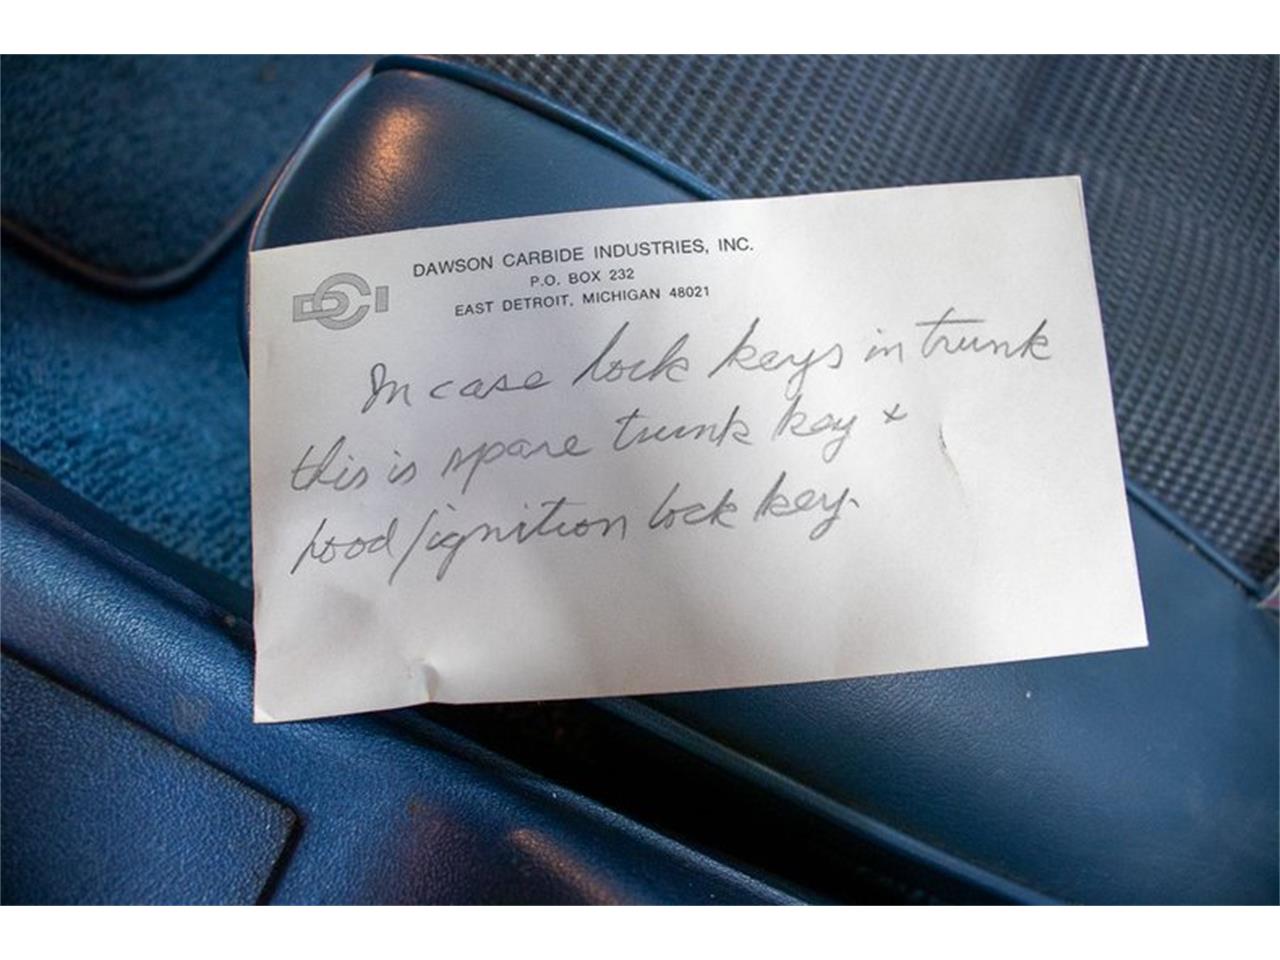 DCI
DAWSON CARBIDE INDUSTRIES, INC.
P.O. BOX 232
EAST DETROIT, MICHIGAN 48021
In case lock keys in trunk
this is spare trunk key +
hood/ignition lock key.